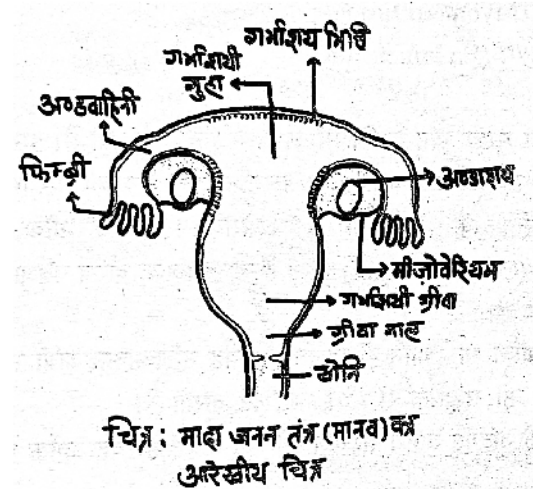 गर्भाशय भित्ति
गर्भाशयी
गुहा
अण्डवाहिनी
फिम्ब्री
अण्डाशय
मीज़ोवेरियम
गर्भाशयी ग्रीवा
ग्रीवा नाल
योनि
चित्र : मादा जनन तंत्र (मानव) का
आरेखीय चित्र